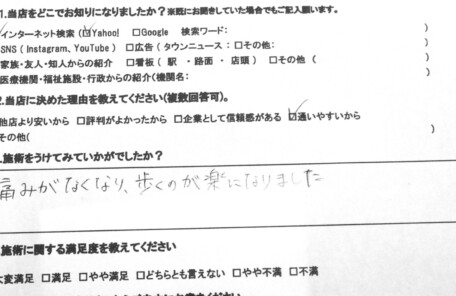 1.当店をどこでお知りになりましたか?※既にお聞きしていた場合でもご記入願います。
インターネット検索(☑Yahoo! □Google 検索ワード: )
SNS(Instagram、YouTube) □広告(タウンニュース:□その他: )
家族・友人・知人からの紹介 □看板(駅・路面・店頭) □その他( )
医療機関・福祉施設・行政からの紹介(機関名: )
2.当店に決めた理由を教えてください(複数回答可)。
他店より安いから □評判がよかったから □企業として信頼感がある ☑通いやすいから
その他( )
.施術をうけてみていかがでしたか?
痛みがなくなり、歩くのが楽になりました
.施術に関する満足度を教えてください
大変満足 □満足 □やや満足 □どちらとも言えない □やや不満 □不満